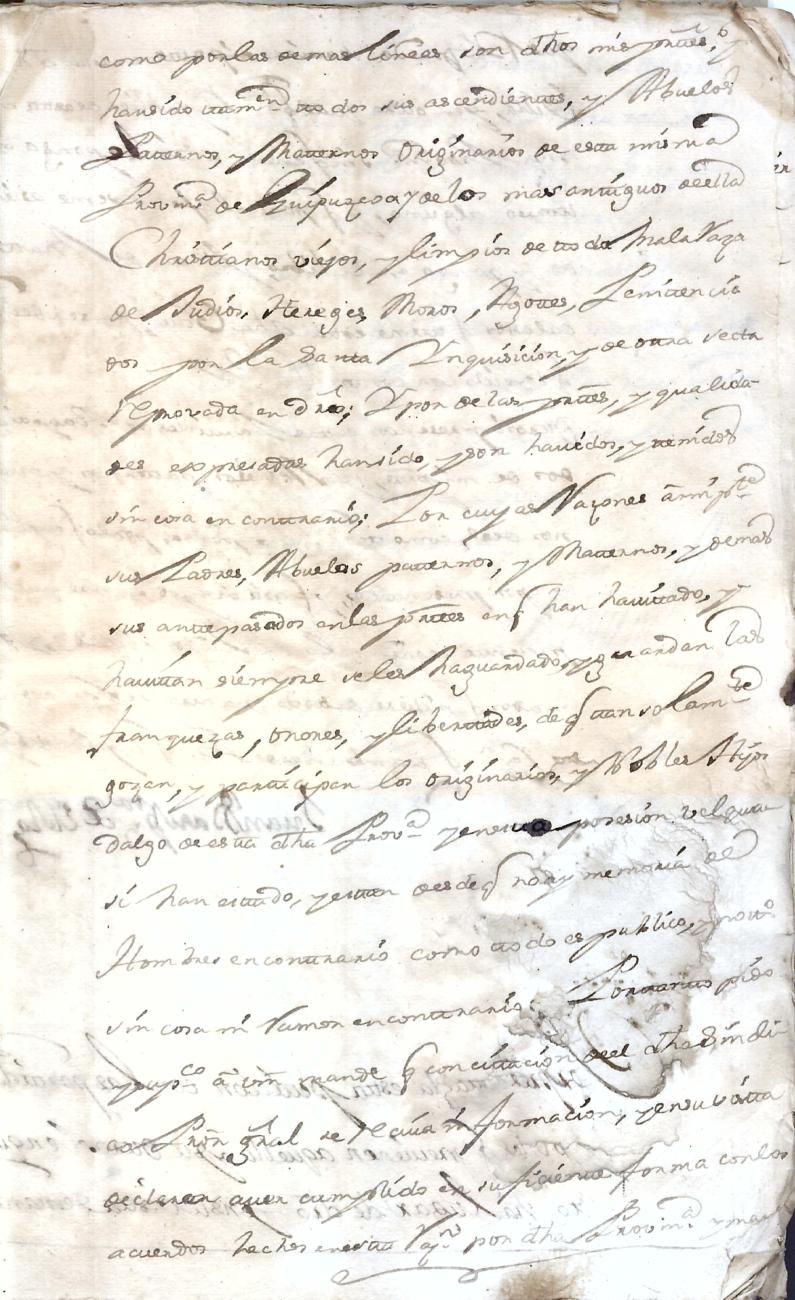 como por las demas lineas son dhos mis partes, y
han sido ttamen ttodos sus ascendientes, y Abuelos
Patternos, y Matternos Originarios de esta misma
Provinª de Guipuzcoa y delos mas antiguos de ella
Christtianos viejos, y limpios de ttoda Mala Raza
de Judios, Hereges, Moros, Agottes, Penittencia
dos por la Santa Ynquisicion, y de otra secta
Reprovada en dro; Y por de las parttes, y qualida-
des expresadas han sido, y son havidos, y tenidos
sin cosa en conttrario; Por cuyas Razones a mi pte
sus Padres, Abuelos patternos, y Matternos, y demas
sus antepasados en las parttes en q han havittado, y
havittan siempre se les ha guardado, y guardan las
franquezas, onores, y liberttades, de q ttan solamte
gozan, y partticipan los originarios, y Nobles Hijos
dalgo de esta dha Provª y en esta posesion vel qua
si han estado, y estan desde q no ay memoria de
Hombres en conttrario como ttodo es publico, y nottº
sin cosa en conttrario: Porttantto pido
y supco a Vm mande q con cittacion de el dho Sindi
co Pror gral se Reciva informacion, y en su vistta
declaren aver cumplido en suficiente forma con los
acuerdos hechos en esta Raon por dha Provinª y man